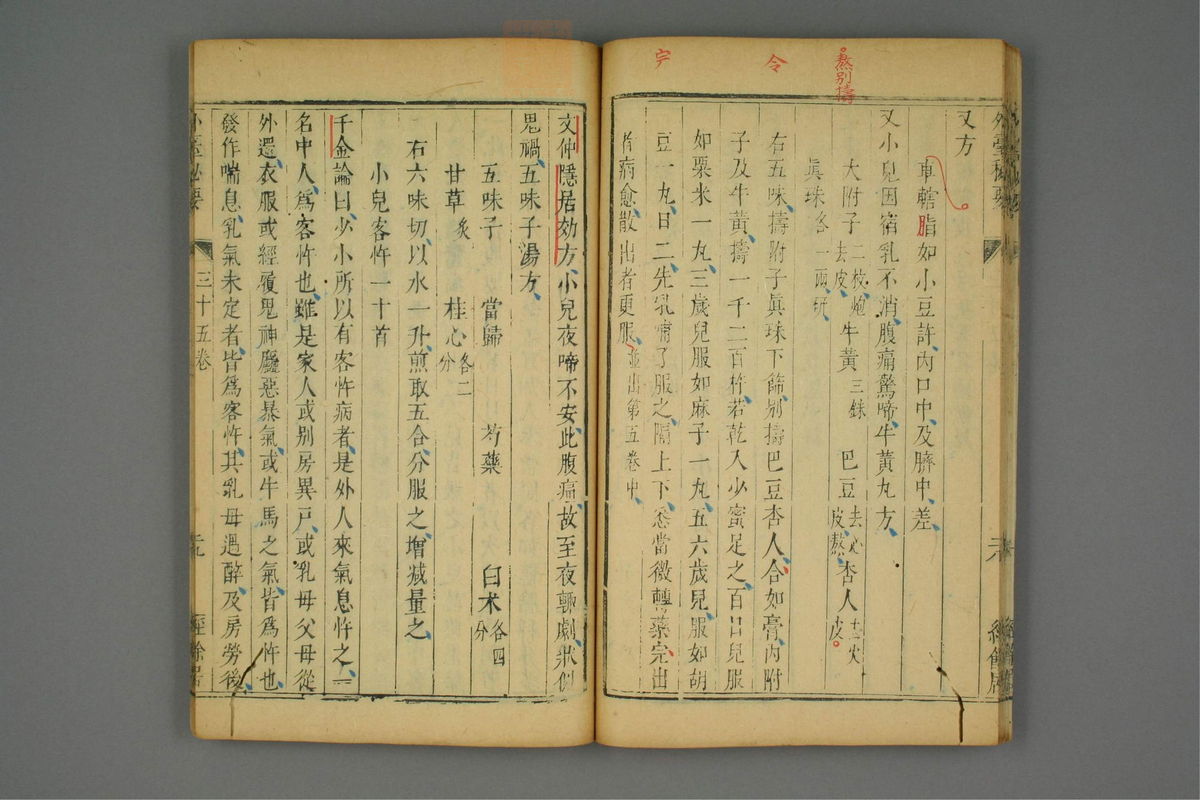 宁
令
熬別擣
又方
車轄脂如小豆許內口中及臍中差
又小兒因宿乳不消腹痛驚啼牛黃丸方
大附子二枚炮去皮牛黃三銖巴豆去心皮熬杏人十二尖皮
眞珠各一兩研
右五味擣附子眞珠下篩別擣巴豆杏人合如膏內附
子及牛黃擣一千二百杵若乾入少蜜足之百日兒服
如栗米一丸三歲兒服如麻子一丸五六歲兒服如胡
豆一丸日二先乳哺了服之隔上下悉當微轉藥完出
者病愈散出者更服並出第五卷中
文仲隱居効方小兒夜啼不安此腹痛故至夜輒劇狀似
鬼禍五味子湯方
五味子 當歸 芍藥 白术各四分
甘草炙 桂心各二分
右六味切以水一升煎取五合分服之增减量之
小兒客忤一十首
千金論曰少小所以有客忤病者是外人來氣息忤之一
名中人爲客忤也雖是家人或別房異戶或乳母父母從
外還衣服或經履鬼神麤惡暴氣或牛馬之氣皆爲忤也
發作喘息乳氣未定者皆爲客忤其乳母遇醉及房勞後
三十五卷
經餘居